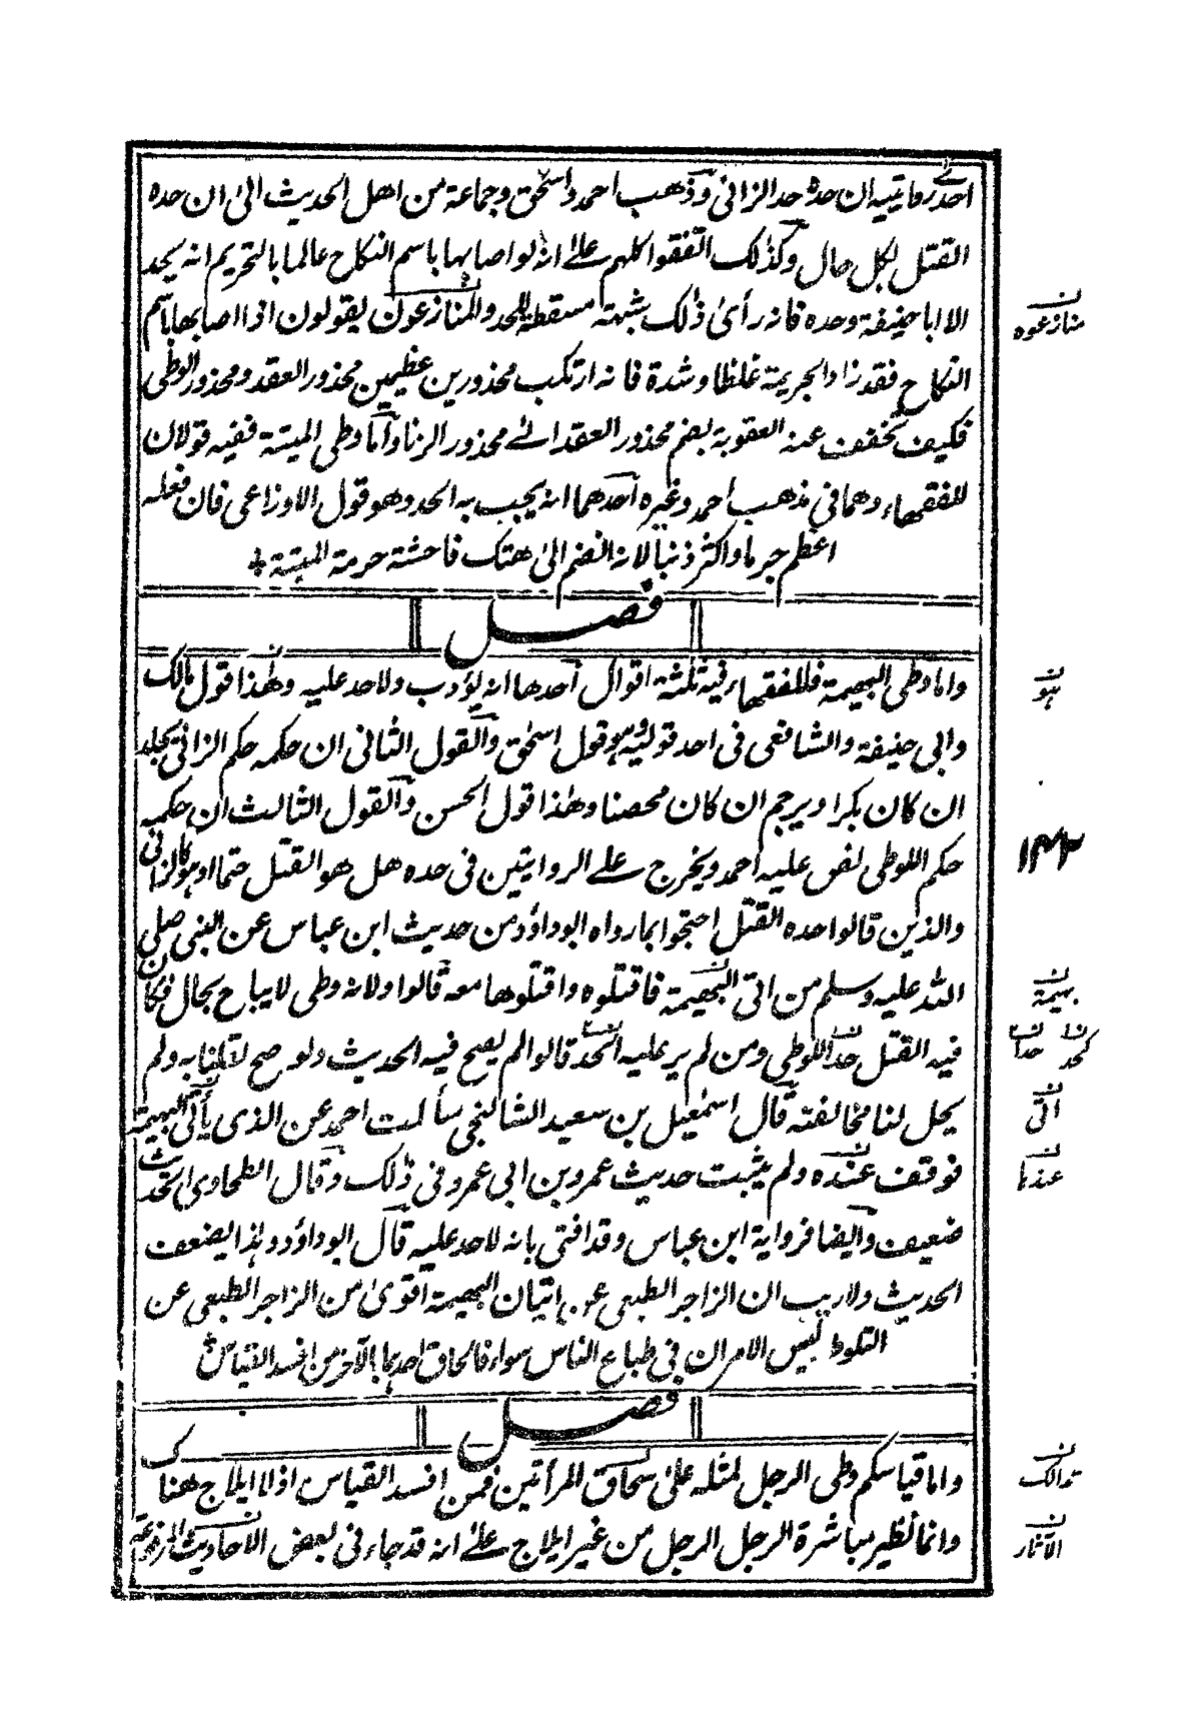 احدى روايتيه ان حده حد الزانی وذهب احمد واسحٰق وجماعة من اهل الحديث الیٰ ان حده
القتل لكل حال وكذٰلك اتفقوا كلهم علےٰ انه لو اصابها باسم النكاح عالما بالتحريم انه يحد
الا ابا حنيفة وحده فانه رأیٰ ذٰلك شبهة مسقطة للحد والمنازعون يقولون اذا اصابها باسم
النكاح فقد زاد الجريمة غلظا وشدة فانه ارتكب محذورين عظيمين محذور العقد ومحذور الوطی
فكيف تخفف عنه العقوبة بضم محذور العقد الےٰ محذور الزنا واما وطی الميتة ففيه قولان
للفقهاء وهما فی مذهب احمد وغيره احدهما انه يجب به الحد وهو قول الاوزاعی فان فعله
اعظم جرما واكثر ذنبا لانه انضم الیٰ هتك فاحشة حرمة الميتة
فصل
واما وطی البهيمة فللفقهاء فيه ثلثة اقوال احدها انه يؤدب ولا حد عليه وهٰذا قول مالك
وابی حنيفة والشافعی فی احد قوليه وهو قول اسحٰق والقول الثانی ان حكمه حكم الزانی يجلد
ان كان بكرا ويرجم ان كان محصنا وهٰذا قول الحسن والقول الثالث ان حكمه
حكم اللوطی نص عليه احمد ويخرج علےٰ الروايتين فی حده هل هو القتل حتما او هو كالزانی
والذين قالوا حده القتل احتجوا بما رواه ابوداؤد من حديث ابن عباس عن النبی صلی
الله عليه وسلم من اتی البهيمة فاقتلوه واقتلوها معه قالوا ولانه وطی لا يباح بحال فكان
فيه القتل حد اللوطی ومن لم ير عليه الحد قالوا لم يصح فيه الحديث ولو صح لقلنا به ولم
يحل لنا مخالفته قال اسمٰعيل بن سعيد الشالنجی سألت احمد عن الذی يأتی البهيمة
فوقف عنده ولم يثبت حديث عمرو بن ابی عمرو فی ذٰلك وقال الطحاوی الحديث
ضعيف وايضا فرواية ابن عباس وقد افتی بانه لا حد عليه قال ابوداؤد وهٰذا يضعف
الحديث ولا ريب ان الزاجر الطبعی عن اتيان البهيمة اقویٰ من الزاجر الطبعی عن
التلوط ليس الامران فی طباع الناس سواء فالحاق احدهما بالآخر من افسد القياس
فصل
واما قياسكم وطی الرجل لمثله علیٰ سحاق المرأتين فمن افسد القياس اذ لا ايلاج هناك
وانما نظير مباشرة الرجل الرجل من غير ايلاج علےٰ انه قد جاء فی بعض الاحاديث المرفوعة
منازعوه
هو
۱۴۲
بهيمة
كحد
اتی
عندها
الآثار